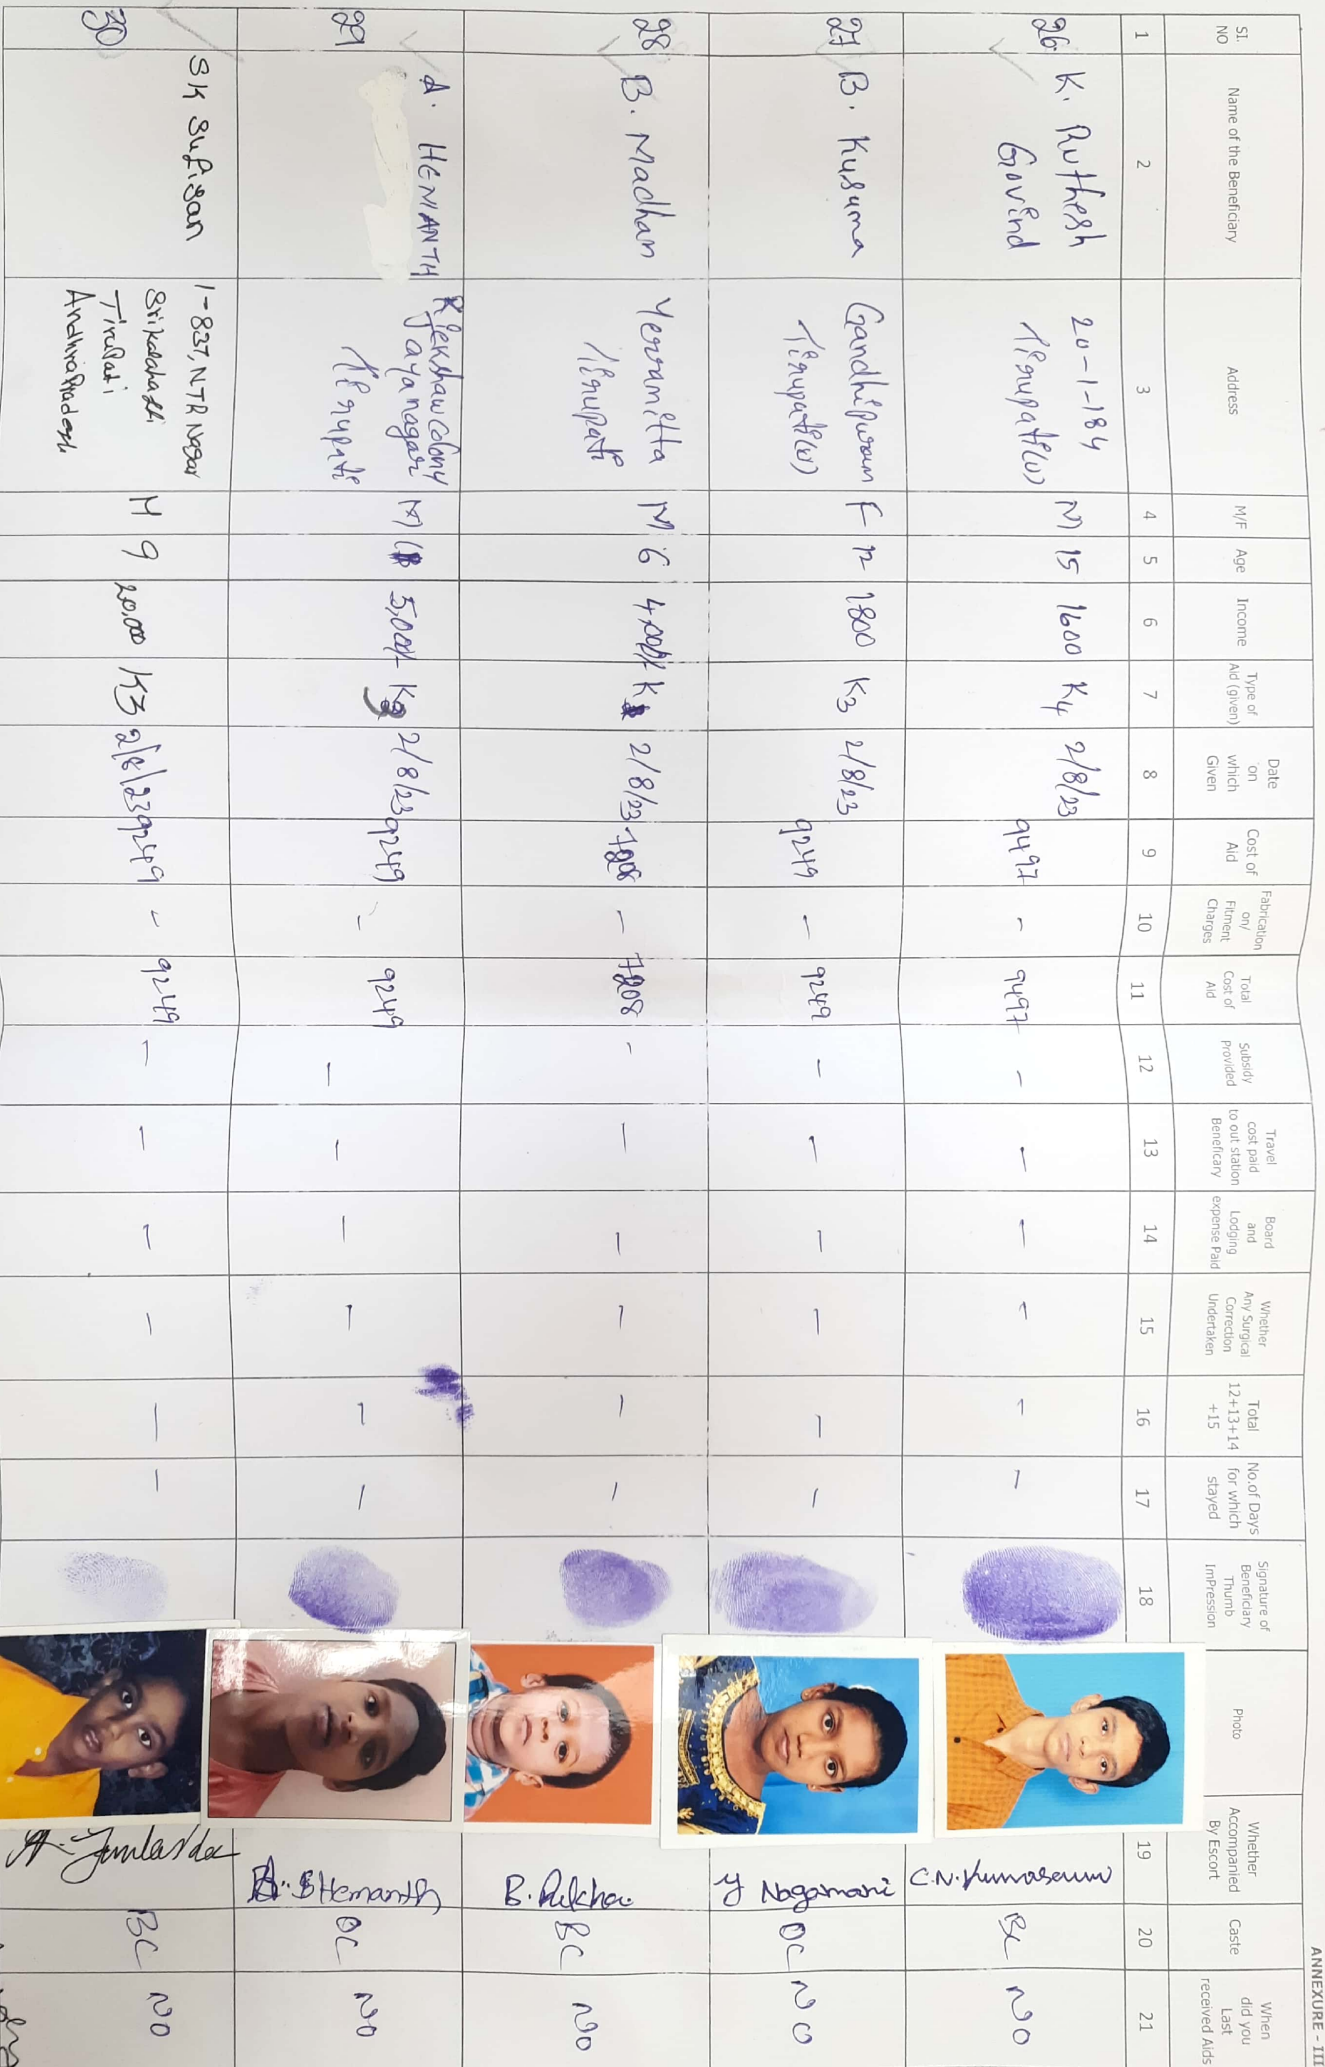 ANNEXURE - III
SI. NO | Name of the Beneficiary | Address | M/F | Age | Income | Type of Aid (given) | Date on which Given | Cost of Aid | Fabrication on/ Fitment Charges | Total Cost of Aid | Subsidy Provided | Travel cost paid to out station Beneficary | Board and Lodging expense Paid | Whether Any Surgical Correction Undertaken | Total 12+13+14 +15 | No.of Days for which stayed | Signature of Beneficiary Thumb ImPression | Photo | Whether Accompanied By Escort | Caste | When did you Last received Aids
1 2 3 4 5 6 7 8 9 10 11 12 13 14 15 16 17 18 19 20 21
26 K. Ruthesh Govind 20-1-184 Tirupati(U) M 15 1600 K4 2/8/23 9497 - 9497 - - - - - - C.N. BC NO
27 B. Kusuma Gandhipuram Tirupati(U) F 12 1800 K3 2/8/23 9249 - 9249 - - - - - - Y Nagamani OC NO
28 B. Madhan Yerramitta Tirupati M 6 4,000/- 2/8/23 7208 - 7208 - - - - - - B. BC NO
29 A. HEMANTH colony Jayanagar Tirupati M 5,000/- K3 2/8/23 9249 - 9249 - - - - - - Hemanth OC NO
30 SK Sufiyan 1-837, NTR Nagar Srikalahasti Tirupati Andhra Pradesh M 9 20,000 K3 2/8/23 9249 - 9249 - - - - - - BC NO